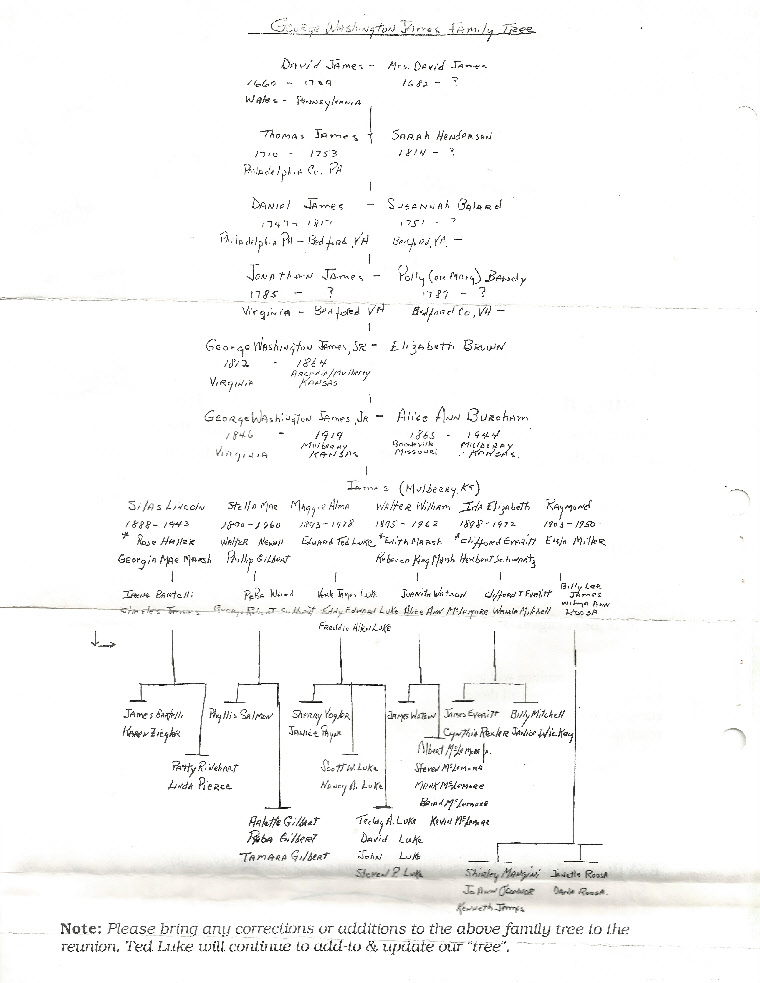 George Washington James Family Tree
David James - Mrs. David James
1660 - 1739 1682 - ?
Wales - Pennsylvania
Thomas James Sarah Henderson
1710 - 1753 1814 - ?
Philadelphia Co. PA
Daniel James - Susannah Balard
1751 - ?
Philadelphia PA - Bedford, VA Bedford, VA. -
Jonathan James - Polly (or Mary) Bandy
1785 - ? 1789 - ?
Virginia - Bedford VA Bedford Co, VA -
George Washington James, Sr - Elizabeth Brunn
1812 - 1864
Arcadia/Mulberry
Virginia Kansas
George Washington James, Jr - Alice Ann Burcham
1846 - 1919 1865 - 1944
Mulberry Mulberry
Virginia Kansas Missouri Kansas.
James (Mulberry, KS)
Silas Lincoln Stella Mae Maggie Alma Walter William Ida Elizabeth Raymond
1888-1943 1890-1960 1893-1978 1895-1962 1898-1972 1903-1950
* Rose Haller Walter Newell Edward Ted Luke * Edith Marsh * Clifford Everitt Elsia Miller
Georgia Mae Marsh Phillip Gilbert Rebecca King Marsh Herbert Schwartz
Irene Bartelli Reba Wood Hank James Luke Juanita Watson Clifford J Everitt Billy Lee James
Charles James George Robert Gilbert Edward Luke Alice Ann McLemore Wanda Mitchell Wilma Ann Roosa
Freddie Hikel Luke
James Bartelli Phyllis Salmon Sherry Vogler James Watson James Everitt Billy Mitchell
Karen Ziegler Janice Thyer Cynthia Rexler Janice Wickey
Albert McLemore Jr.
Patty Rinehart Scott W. Luke Steven McLemore
Linda Pierce Nancy A. Luke Mark McLemore
Brad McLemore
Arlette Gilbert Teddy A. Luke Kevin McLemore
Reba Gilbert David Luke
Tamara Gilbert John Luke
Steven P. Luke Shirley Mangini Janette Roosa
Jo Ann O'Connor Darla Roosa
Kenneth James
Note: Please bring any corrections or additions to the above family tree to the
reunion. Ted Luke will continue to add-to & update our "tree".